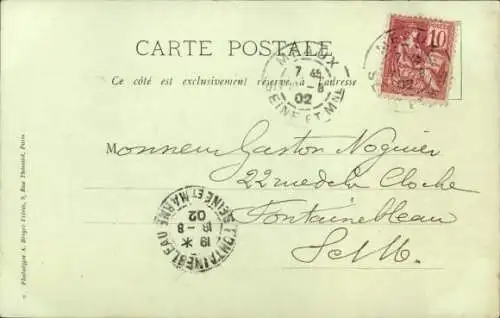 CARTE POSTALE
Ce côté est exclusivement réservé à l'adresse
MEAUX
7 45
8
02
SEINE ET MNE
10
02
Monsieur Gaston Noguier
22 rue de la Cloche
Fontainebleau
S et M.
FONTAINEBLEAU
19 *
18 - 8
02
SEINE ET MARNE
Phototypie A. Bergeret Frères, 9, Rue Thénard, Paris